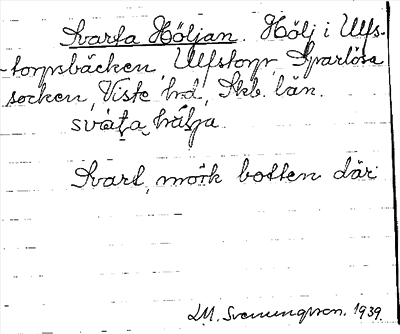 Svarta Höljan. Hölj i Ulfs-
-torpsbäcken, Ulfstorp, Sparlösa
socken, Viste hd, Skb. län.
svàta hälja
Svart, mörk botten där
L.M. Svenungsson. 1939.